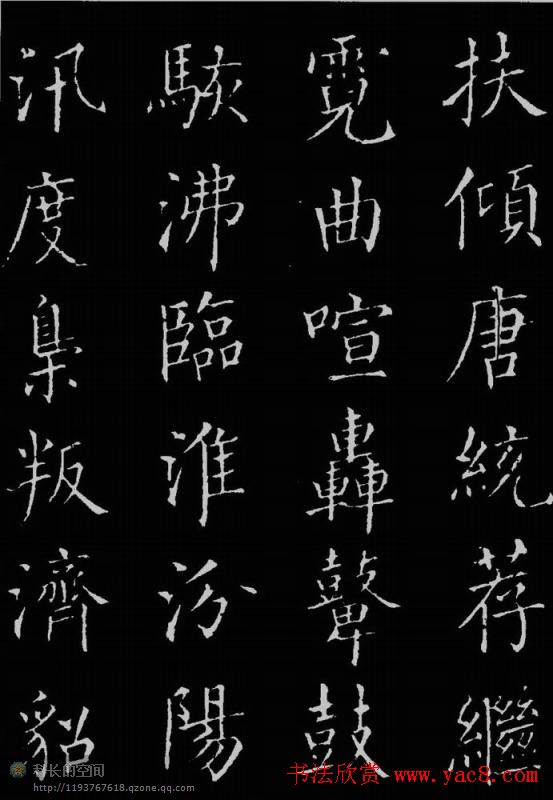 扶傾唐統荐繼
霓曲喧轟鼙鼓
駭沸臨淮汾陽
汛度梟叛濟貂
科长的空间
http://1193767618.qzone.qq.com
书法欣赏 www.yac8.com